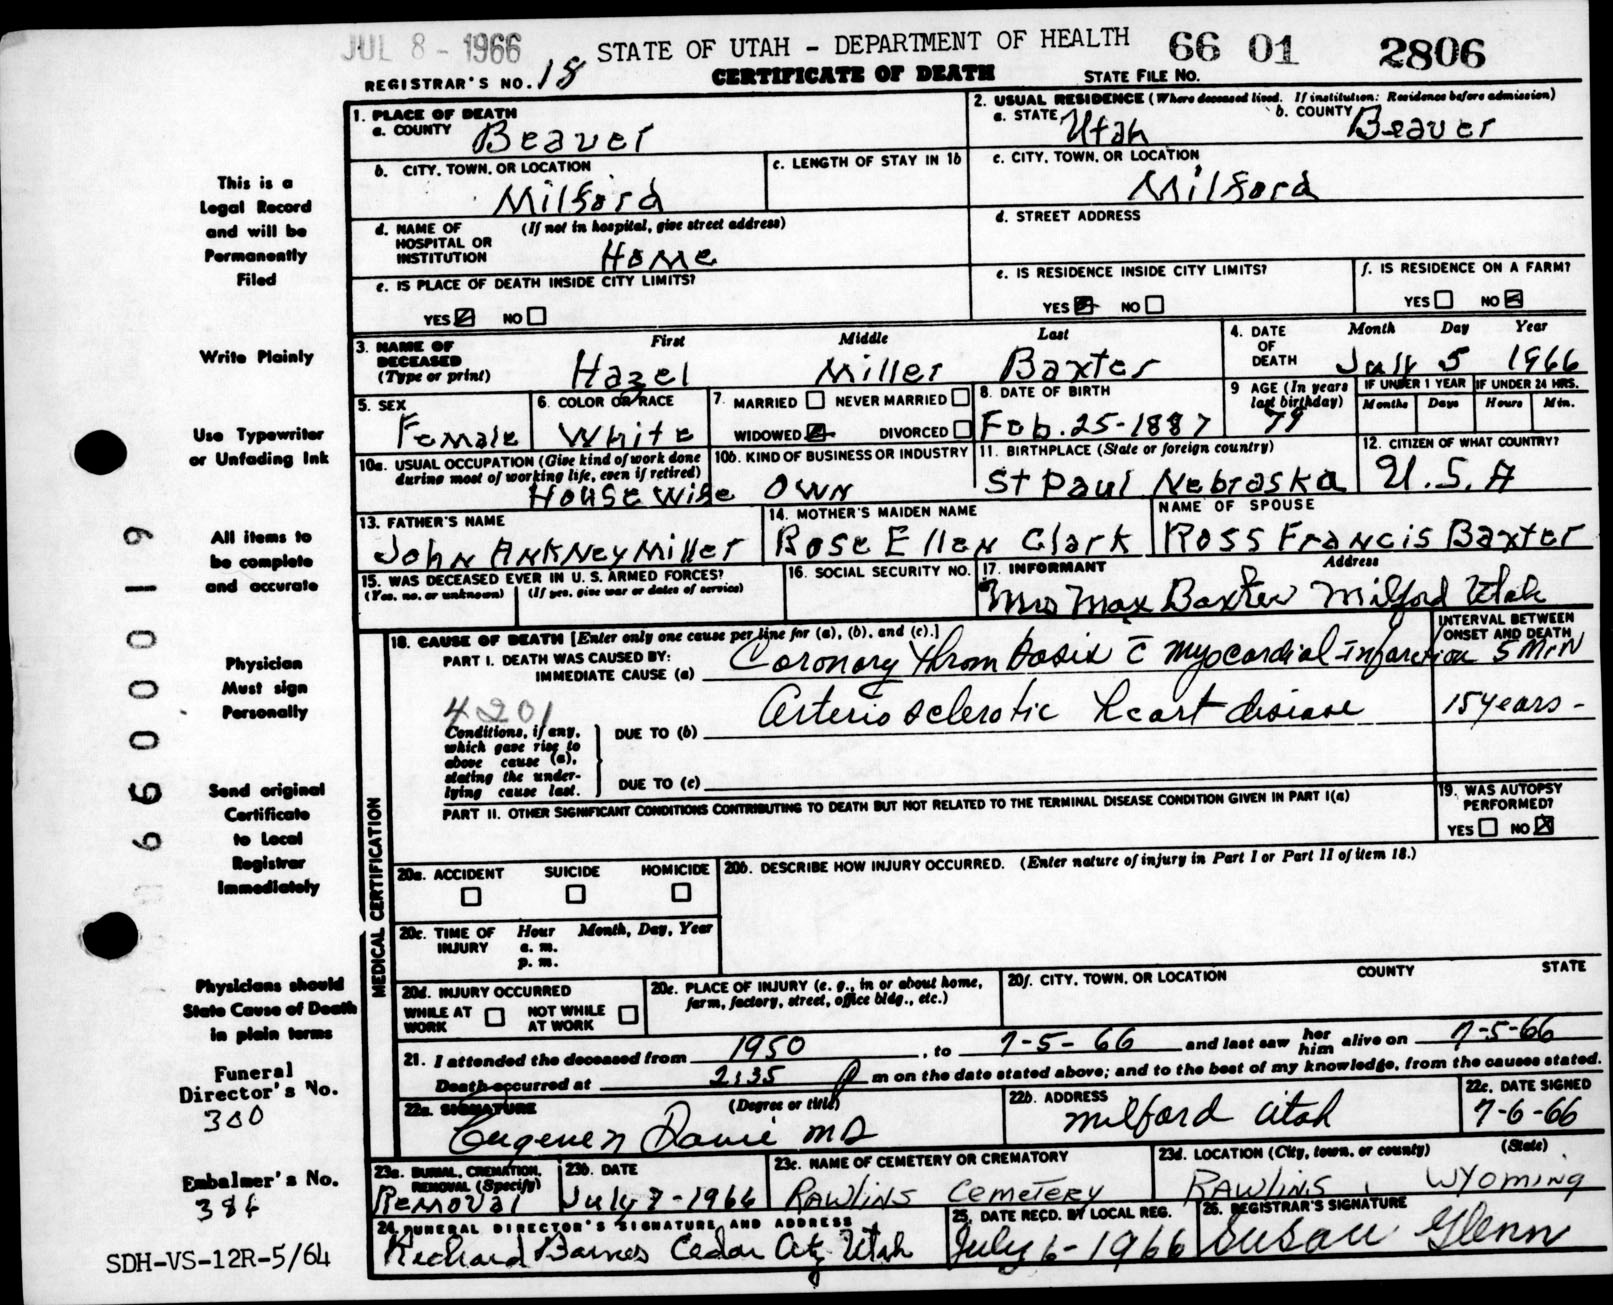 JUL 8 - 1966
STATE OF UTAH - DEPARTMENT OF HEALTH
66 01 2806
REGISTRAR'S NO. 18
CERTIFICATE OF DEATH
STATE FILE NO.
1. PLACE OF DEATH
a. COUNTY Beaver
2. USUAL RESIDENCE (Where deceased lived. If institution: Residence before admission)
a. STATE Utah b. COUNTY Beaver
b. CITY, TOWN, OR LOCATION
Milford
c. LENGTH OF STAY IN 1b
c. CITY, TOWN, OR LOCATION
Milford
d. NAME OF HOSPITAL OR INSTITUTION (If not in hospital, give street address)
Home
d. STREET ADDRESS
e. IS PLACE OF DEATH INSIDE CITY LIMITS?
YES NO
e. IS RESIDENCE INSIDE CITY LIMITS?
YES NO
f. IS RESIDENCE ON A FARM?
YES NO
3. NAME OF DECEASED (Type or print)
First Middle Last
Hazel Miller Baxter
4. DATE OF DEATH
Month Day Year
July 5 1966
5. SEX
Female
6. COLOR OR RACE
White
7. MARRIED NEVER MARRIED
WIDOWED DIVORCED
8. DATE OF BIRTH
Feb. 25-1887
9 AGE (In years last birthday)
79
IF UNDER 1 YEAR
Months Days
IF UNDER 24 HRS.
Hours Min.
10a. USUAL OCCUPATION (Give kind of work done during most of working life, even if retired)
Housewife
10b. KIND OF BUSINESS OR INDUSTRY
Own
11. BIRTHPLACE (State or foreign country)
St Paul Nebraska
12. CITIZEN OF WHAT COUNTRY?
U.S.A
13. FATHER'S NAME
John Ankney Miller
14. MOTHER'S MAIDEN NAME
Rose Ellen Clark
NAME OF SPOUSE
Ross Francis Baxter
15. WAS DECEASED EVER IN U. S. ARMED FORCES?
(Yes, no, or unknown) (If yes, give war or dates of service)
16. SOCIAL SECURITY NO.
17. INFORMANT Address
Mrs Max Baxter Milford Utah
18. CAUSE OF DEATH [Enter only one cause per line for (a), (b), and (c).]
INTERVAL BETWEEN ONSET AND DEATH
PART I. DEATH WAS CAUSED BY:
IMMEDIATE CAUSE (a) Coronary Thrombosis c̄ myocardial Infarction 5 Min
4201
Conditions, if any, which gave rise to above cause (a), stating the underlying cause last.
DUE TO (b) Arteriosclerotic heart disease 15 years -
DUE TO (c)
PART II. OTHER SIGNIFICANT CONDITIONS CONTRIBUTING TO DEATH BUT NOT RELATED TO THE TERMINAL DISEASE CONDITION GIVEN IN PART I(a)
19. WAS AUTOPSY PERFORMED?
YES NO
MEDICAL CERTIFICATION
20a. ACCIDENT SUICIDE HOMICIDE
20b. DESCRIBE HOW INJURY OCCURRED. (Enter nature of injury in Part I or Part II of item 18.)
20c. TIME OF INJURY Hour Month, Day, Year
a. m.
p. m.
20d. INJURY OCCURRED
WHILE AT WORK NOT WHILE AT WORK
20e. PLACE OF INJURY (e. g., in or about home, farm, factory, street, office bldg., etc.)
20f. CITY, TOWN, OR LOCATION COUNTY STATE
21. I attended the deceased from 1950, to 7-5-66 and last saw her him alive on 7-5-66
Death occurred at 2:35 P m on the date stated above; and to the best of my knowledge, from the causes stated.
22a. SIGNATURE (Degree or title)
Eugene N Davie MD
22b. ADDRESS
Milford Utah
22c. DATE SIGNED
7-6-66
23a. BURIAL, CREMATION, REMOVAL (Specify)
Removal
23b. DATE
July 7-1966
23c. NAME OF CEMETERY OR CREMATORY
Rawlins Cemetery
23d. LOCATION (City, town, or county) (State)
Rawlins, Wyoming
24. FUNERAL DIRECTOR'S SIGNATURE AND ADDRESS
Richard Barnes Cedar City Utah
25. DATE RECD. BY LOCAL REG.
July 6-1966
26. REGISTRAR'S SIGNATURE
Susan Glenn
This is a
Legal Record
and will be
Permanently
Filed
Write Plainly
Use Typewriter
or Unfading Ink
All items to
be complete
and accurate
Physician
Must sign
Personally
Send original
Certificate
to Local
Registrar
Immediately
Physicians should
State Cause of Death
in plain terms
Funeral
Director's No.
300
Embalmer's No.
SDH-VS-12R-5/64